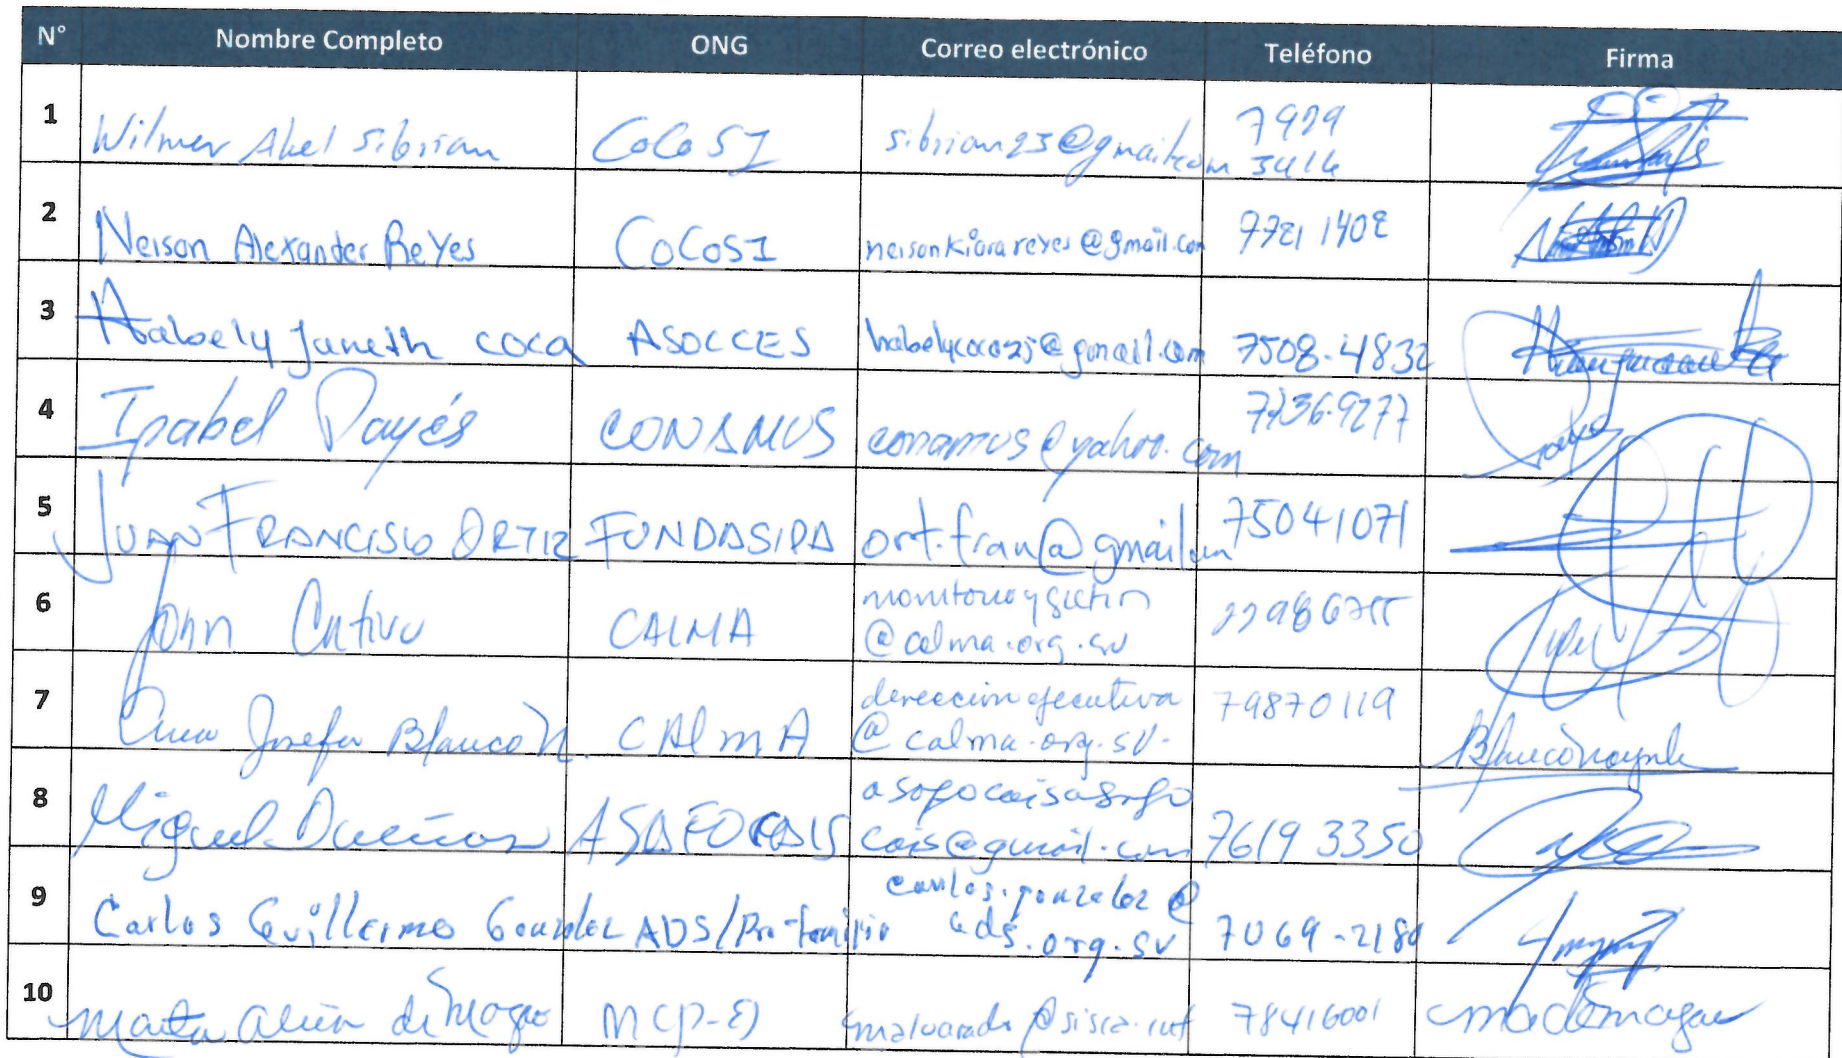 N° Nombre Completo ONG Correo electrónico Teléfono Firma
1 Wilmer Abel Sibrian CoCoSI sibrian23@gmail.com 7929 3414
2 Nelson Alexander Reyes CoCoSI nelsonkiarareyes@gmail.com 7721 1402
3 Habely Janeth coca ASOCCES habelycoca25@gmail.com 7508-4832
4 Isabel Payés CONAMUS conamus@yahoo.com 7736-9277
5 JUAN FRANCISCO ORTIZ FUNDASIDA ort.fran@gmail.com 75041071
6 John Cativo CALMA
@calma.org.sv
7 Ana Josefa Blanco N. CAlmA dereccion ejecutiva 79870119
@calma.org.sv.
8 Miguel Dueñas ASAFOCAIS
cais@gmail.com 7619 3350
9 Carlos Guillermo Gonzalez ADS/Pro-familia carlos.gonzalez@
ads.org.sv 7069-2180
10 Marta de Magaña MCP-ES 78416001